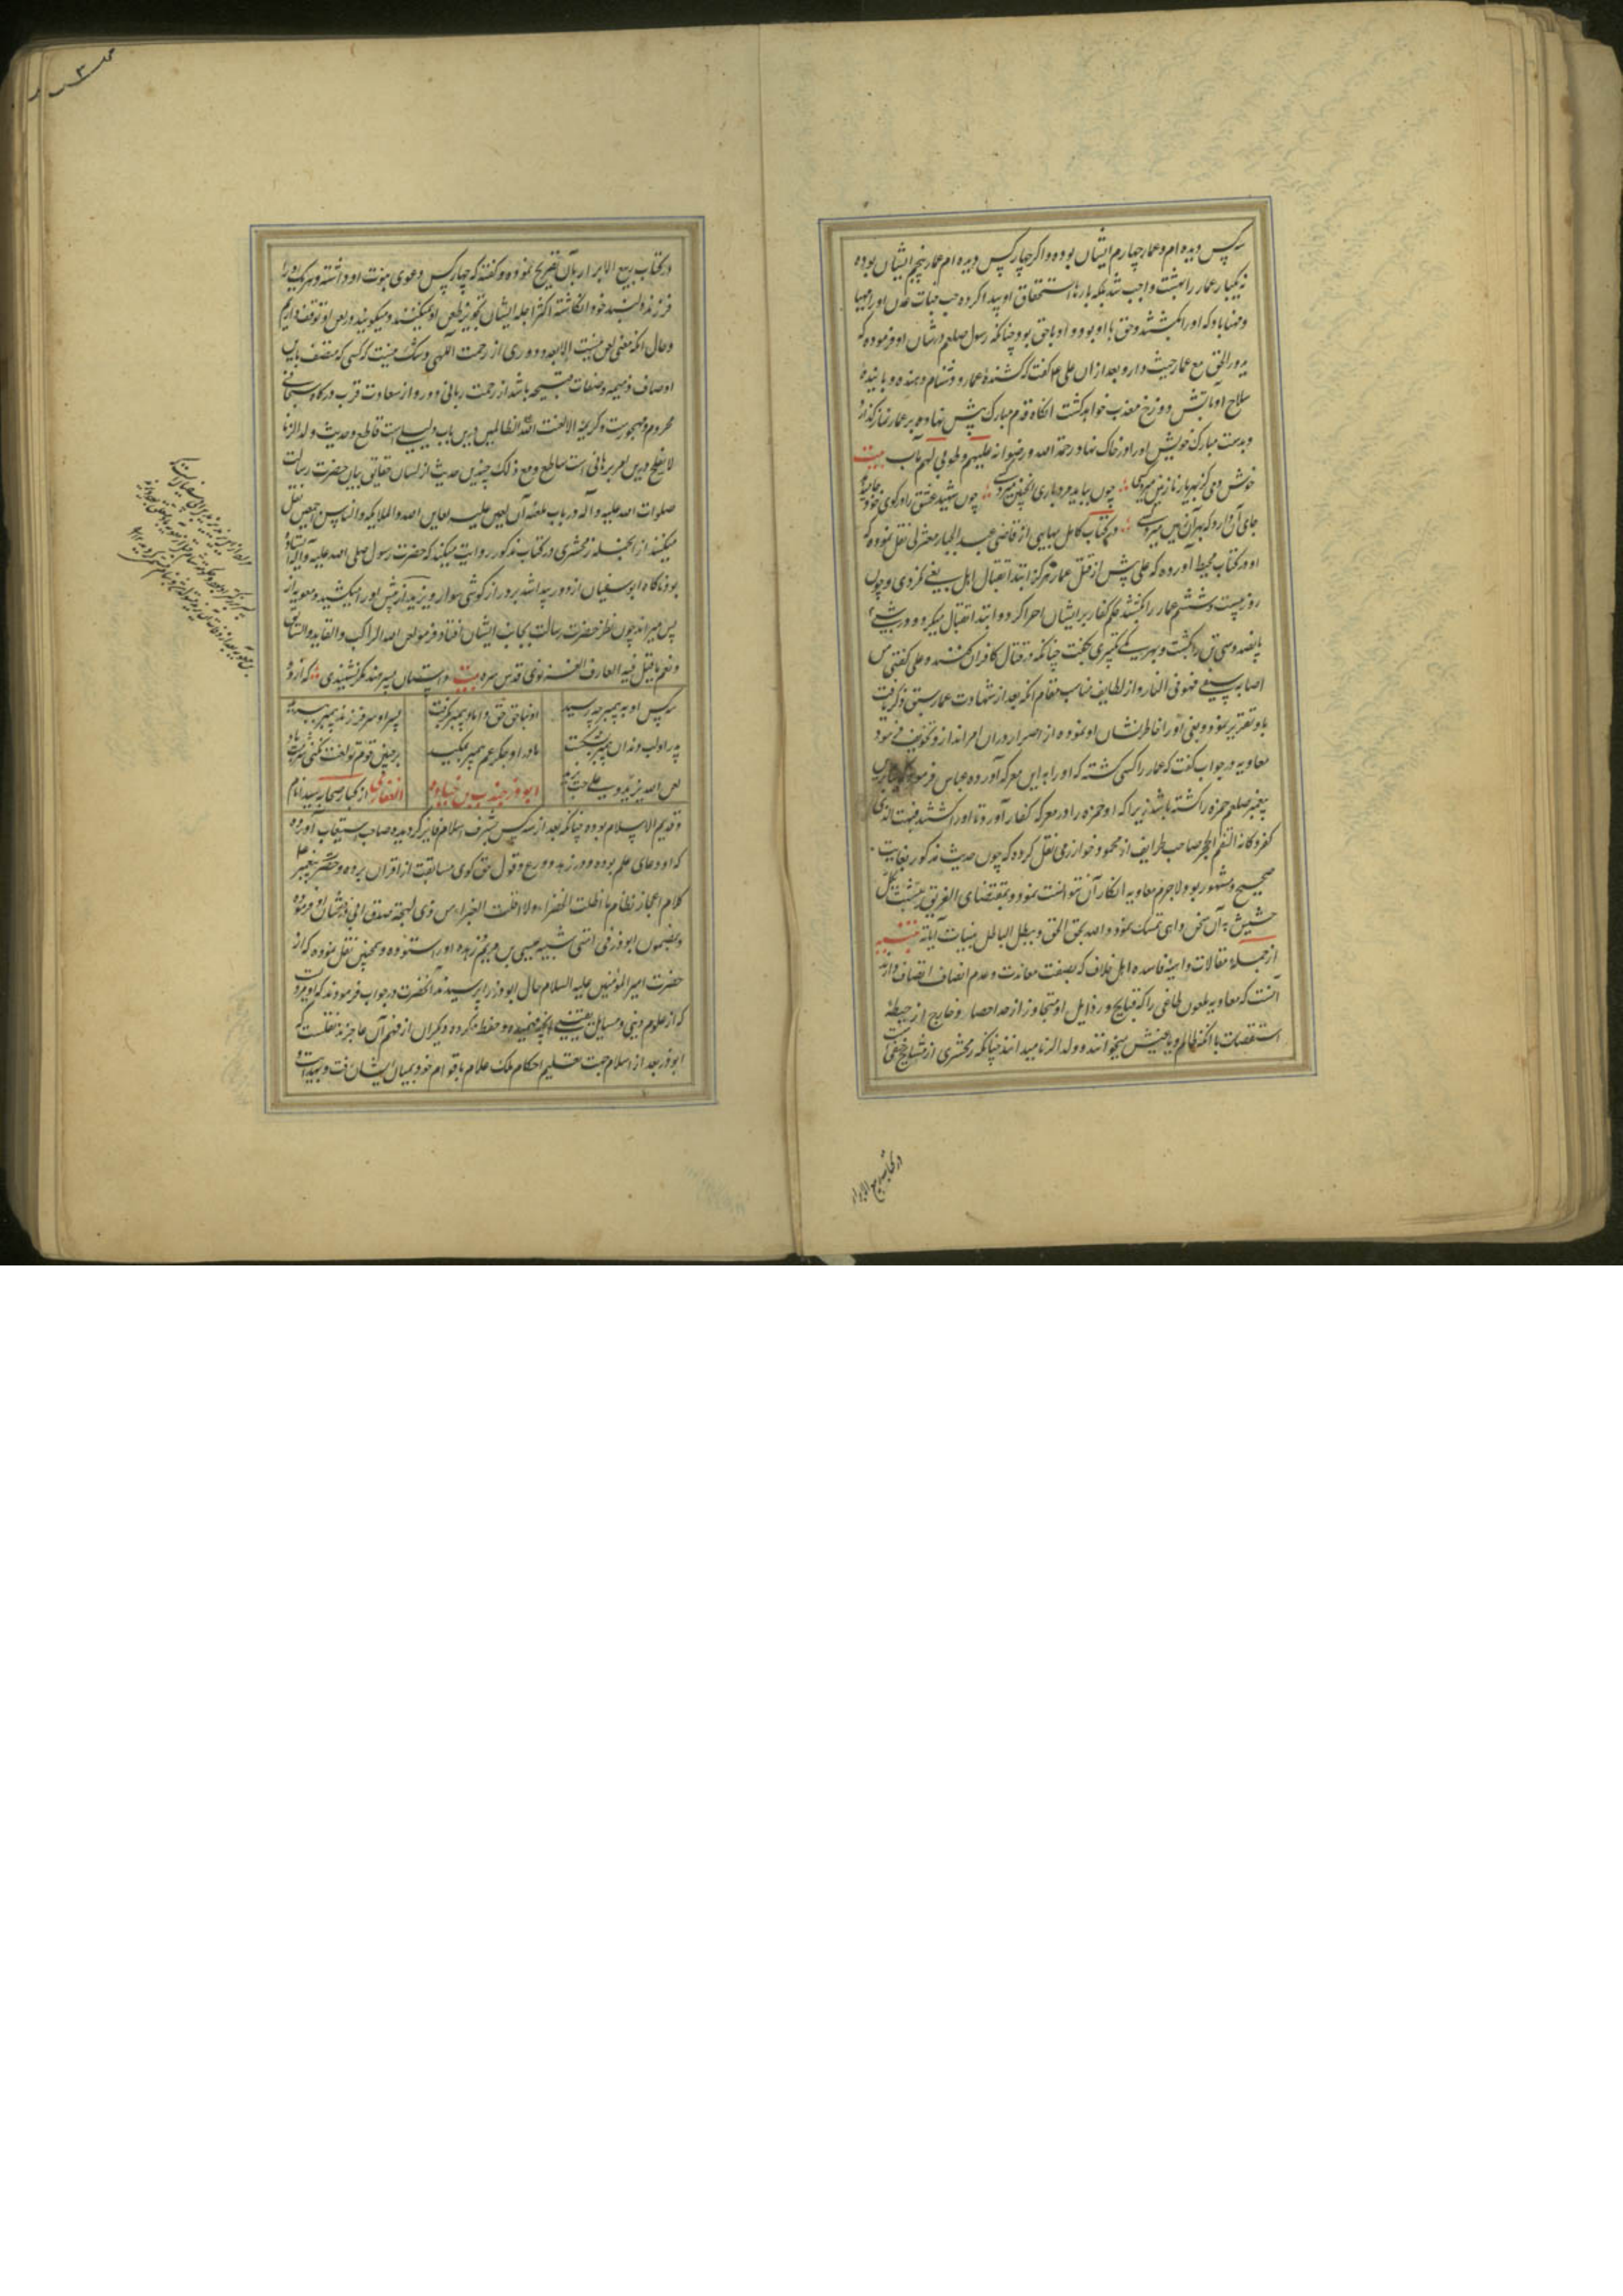 سه کس دیده ام و عمار چهارم ایشان بوده و اگر چهار کس دیده ام عمار پنجم ایشان بوده
نه یکبار عمار را بهشت واجب شد بلکه بارها استحقاق او پیدا کرده جنات عدن او را مهیا
و مهنا باد که او را بکشتند و حق با او بود و او با حق بود چنانکه رسول صلعم در شان او فرموده که
یدور الحق مع عمار حیث دار و بعد از آن علی ع گفت کشنده عمار و دشنام دهنده و رباینده
سلاح او بآتش دوزخ معذب خواهد گشت انگاه قدم مبارک پیش نهاد و بر عمار نماز گذارد
و بدست مبارک خویش او را در خاک نهاد رحمة الله و رضوانه علیهم و طوبی لهم و حسن مآب بیت
خوش دمی کز بهر یار نازنین میرد کسی چون بباید مرد باری اینچنین میرد کسی چون شهید عشق را در کوی خود جا میدهد
جای آن دارد که بهر آن زمین میرد کسی و در کتاب کامل بهایی از قاضی عبد الجبار معتزلی نقل نموده که
او در کتاب محیط آورده که علی پیش از قتل عمار هرگز ابتدا بقتال اهل بغی نکردی و چون
روز بیست و ششم عمار را بکشتند حکم کفار بر ایشان اجرا کرد و ابتدا بقتال میکرد و در شبی
پانصد و سی تن را بکشت و بهر یکی تکبیری بگفت چنانکه در قتال کافران کنند و علی گفتی من
اصابه سیفی فهو فی النار و از لطایف مناسب مقام انکه بعد از شهادت عمار
معاویه در جواب گفت که عمار را کسی کشته که او را به این معرکه آورده عباس فرمود
پیغمبر صلعم حمزه را کشته باشد زیرا که او حمزه را در معرکه کفار آورد تا او را کشتند فبهت الذی
کفر و کانه التقم الحجر صاحب طرایف از محمود خوارزمی نقل کرده که چون حدیث مذکور بغایت
صحیح و مشهور بود لاجرم معاویه انکار آن نتوانست نمود و بمقتضای الغریق یتشبث بکل
حشیش به آن سخن واهی تمسک نمود و الله یحق الحق و یبطل الباطل ببینات آیاته تنبیه
از جمله مقالات واهیه فاسده اهل خلاف که بصفت معاندت و عدم انصاف اتصاف دارند
آنست که معاویه ملعون طاغی را که قبایح و رذایل او متجاوز از حد احصار و خارج از حیطه
استقصاست با انکه ظالم و یا باغیش میخوانند و ولد الزنا میدانند چنانکه زمخشری از مشایخ حنفی است
در کتاب ربیع الابرار
در کتاب ربیع الابرار بآن تصریح نموده و گفته که چهار کس دعوی بنوت او داشته و هر یک او را
فرزند دلبند خود انگاشته اکثر اجله ایشان تجویز طعن او میکنند و میگویند در لعن او توقف داریم
و حال انکه معنی لعن نیست الا بعد و دوری از رحمت آلهی و شک نیست که کسی که متصف باین
اوصاف ذمیمه و صفات قبیحه باشد از رحمت ربانی دور و از سعادت قرب درگاه سبحانی
محروم و مهجورست و کریمه الا لعنت الله الظالمین درین باب دلیلی است قاطع و حدیث ولد الزنا
لا یفلح درین لعن برهانی است ساطع و مع ذلک چندین حدیث از لسان حقایق بیان حضرت رسالت
صلوات الله علیه و آله در باب ملعنه آن لعین علیه لعاین الله و الملائکه و الناس اجمعین نقل
میکنند از انجمله زمخشری در کتاب مذکور روایت میکند که حضرت رسول صلی الله علیه و آله ایستاده
بود ناگاه ابو سفیان از دور پیدا شد بر دراز گوشی سوار و یزید از پیش او را میکشید و معویه از
پس میراند چون نظر حضرت رسالت بجانب ایشان افتاد فرمود لعن الله الراکب و القاید و السایق
و نعم ما قیل فیه العارف الغزنوی قدس سره بیت داستان پسر هند مگر نشنیدی که از و و
سه کس او به پیمبر چه رسید
پدر او لب و دندان پیمبر بشکست
مادر او جگر عم پیمبر بمکید
او بناحق حق داماد پیمبر بگرفت
پسر او سر فرزند پیمبر ببرید
بر چنین قوم تو لعنت نکنی شرمت باد
لعن الله یزید و علی حب یزید
ابوذر جندب بن جناده
الغفاری از کبار صحابه سید انام
و قدیم الاسلام بوده چنانکه بعد از سه کس بشرف اسلام فایز گردیده و صاحب استیعاب آورده
که او وعای علم بوده و در زهد و ورع و قول حق گوی مسابقت از اقران برده و حضرت پیغمبر
کلام اعجاز نظام ما اظلت الخضراء و لا اقلت الغبراء من ذی لهجة صدق ابی ذر در شان او فرموده
و بمضمون ابوذر فی امتی شبیه عیسی بن مریم فی زهده او را ستوده و همچنین نقل نموده که از
حضرت امیر المؤمنین علیه السلام حال ابوذر را پرسیدند آنحضرت در جواب فرمودند که او مردیست
که از علوم دینی و مسایل یقینی آنچه فهمیده و حفظ کرده دیگران از فهم آن عاجزند نقلست که
ابوذر بعد از اسلام جهت تعلیم احکام ملک علام باقوام خود بمیان ایشان رفت و بهدایت